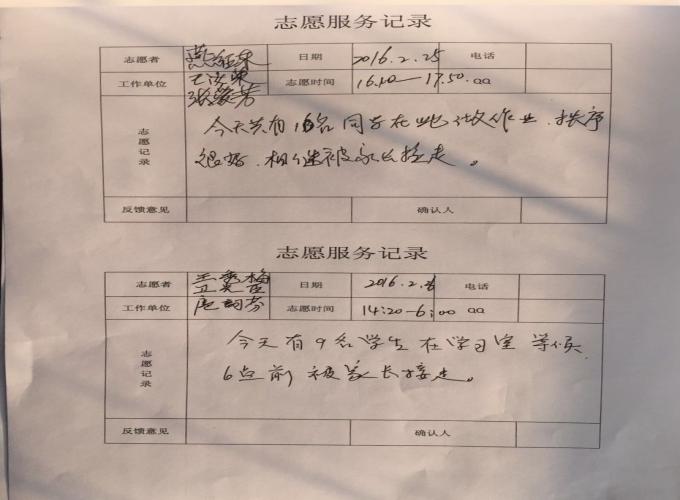 志愿服务记录
志愿者 日期 2016.2.25 电话
工作单位 志愿时间 16.10—17.50.
志愿记录
今天共有16名同学在此做作业.秩序
很好.相继被家长接走。
反馈意见 确认人
志愿服务记录
志愿者 王秀梅 日期 2016.2. 电话
工作单位 志愿时间 14:20-6:00
志愿记录
今天有9名学生在学习室等候.
6点前被家长接走。
反馈意见 确认人